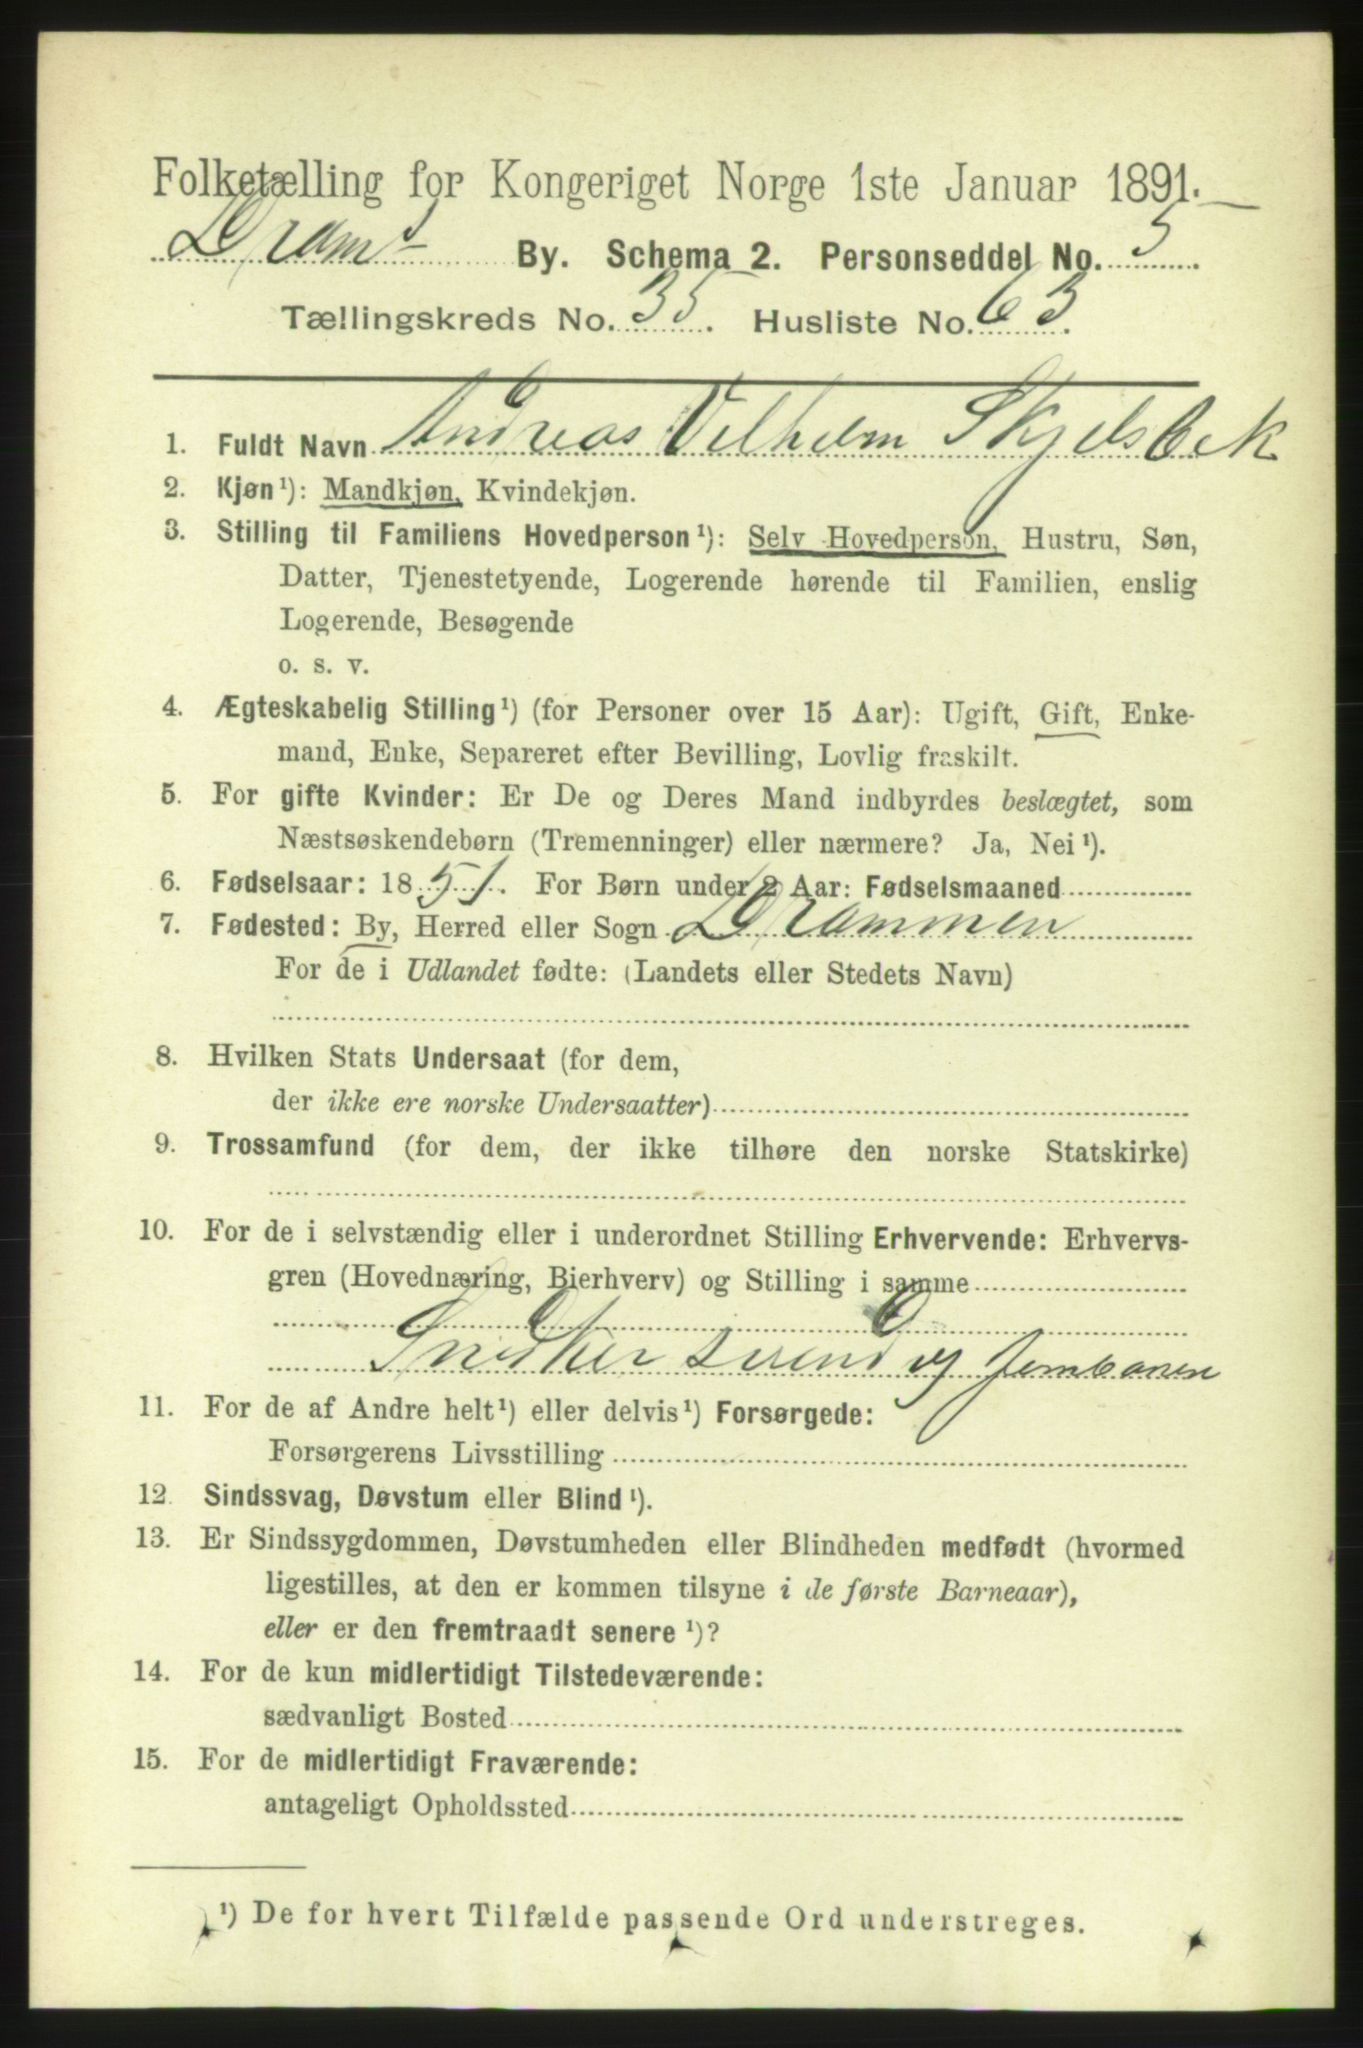 Folketælling for Kongeriget Norge 1ste Januar 1891.
Dram By. Schema 2. Personseddel No. 5
Tællingskreds No. 35. Husliste No. 63.
1. Fuldt Navn Andreas Vilhelm Skjelsbek
2. Kjøn¹): Mandkjøn, Kvindekjøn.
3. Stilling til Familiens Hovedperson¹): Selv Hovedperson, Hustru, Søn,
Datter, Tjenestetyende, Logerende hørende til Familien, enslig
Logerende, Besøgende
o. s. v.
4. Ægteskabelig Stilling¹) (for Personer over 15 Aar): Ugift, Gift, Enke-
mand, Enke, Separeret efter Bevilling, Lovlig fraskilt.
5. For gifte Kvinder: Er De og Deres Mand indbyrdes beslægtet, som
Næstsøskendebørn (Tremenninger) eller nærmere? Ja, Nei¹).
6. Fødselsaar: 1851. For Børn under 2 Aar: Fødselsmaaned
7. Fødested: By, Herred eller Sogn Drammen
For de i Udlandet fødte: (Landets eller Stedets Navn)
8. Hvilken Stats Undersaat (for dem,
der ikke ere norske Undersaatter)
9. Trossamfund (for dem, der ikke tilhøre den norske Statskirke)
10. For de i selvstændig eller i underordnet Stilling Erhvervende: Erhvervs-
gren (Hovednæring, Bierhverv) og Stilling i samme
Snedker svend Jernbanen
11. For de af Andre helt¹) eller delvis¹) Forsørgede:
Forsørgerens Livsstilling
12. Sindssvag, Døvstum eller Blind¹).
13. Er Sindssygdommen, Døvstumheden eller Blindheden medfødt (hvormed
ligestilles, at den er kommen tilsyne i de første Barneaar),
eller er den fremtraadt senere¹)?
14. For de kun midlertidigt Tilstedeværende:
sædvanligt Bosted
15. For de midlertidigt Fraværende:
antageligt Opholdssted
¹) De for hvert Tilfælde passende Ord understreges.